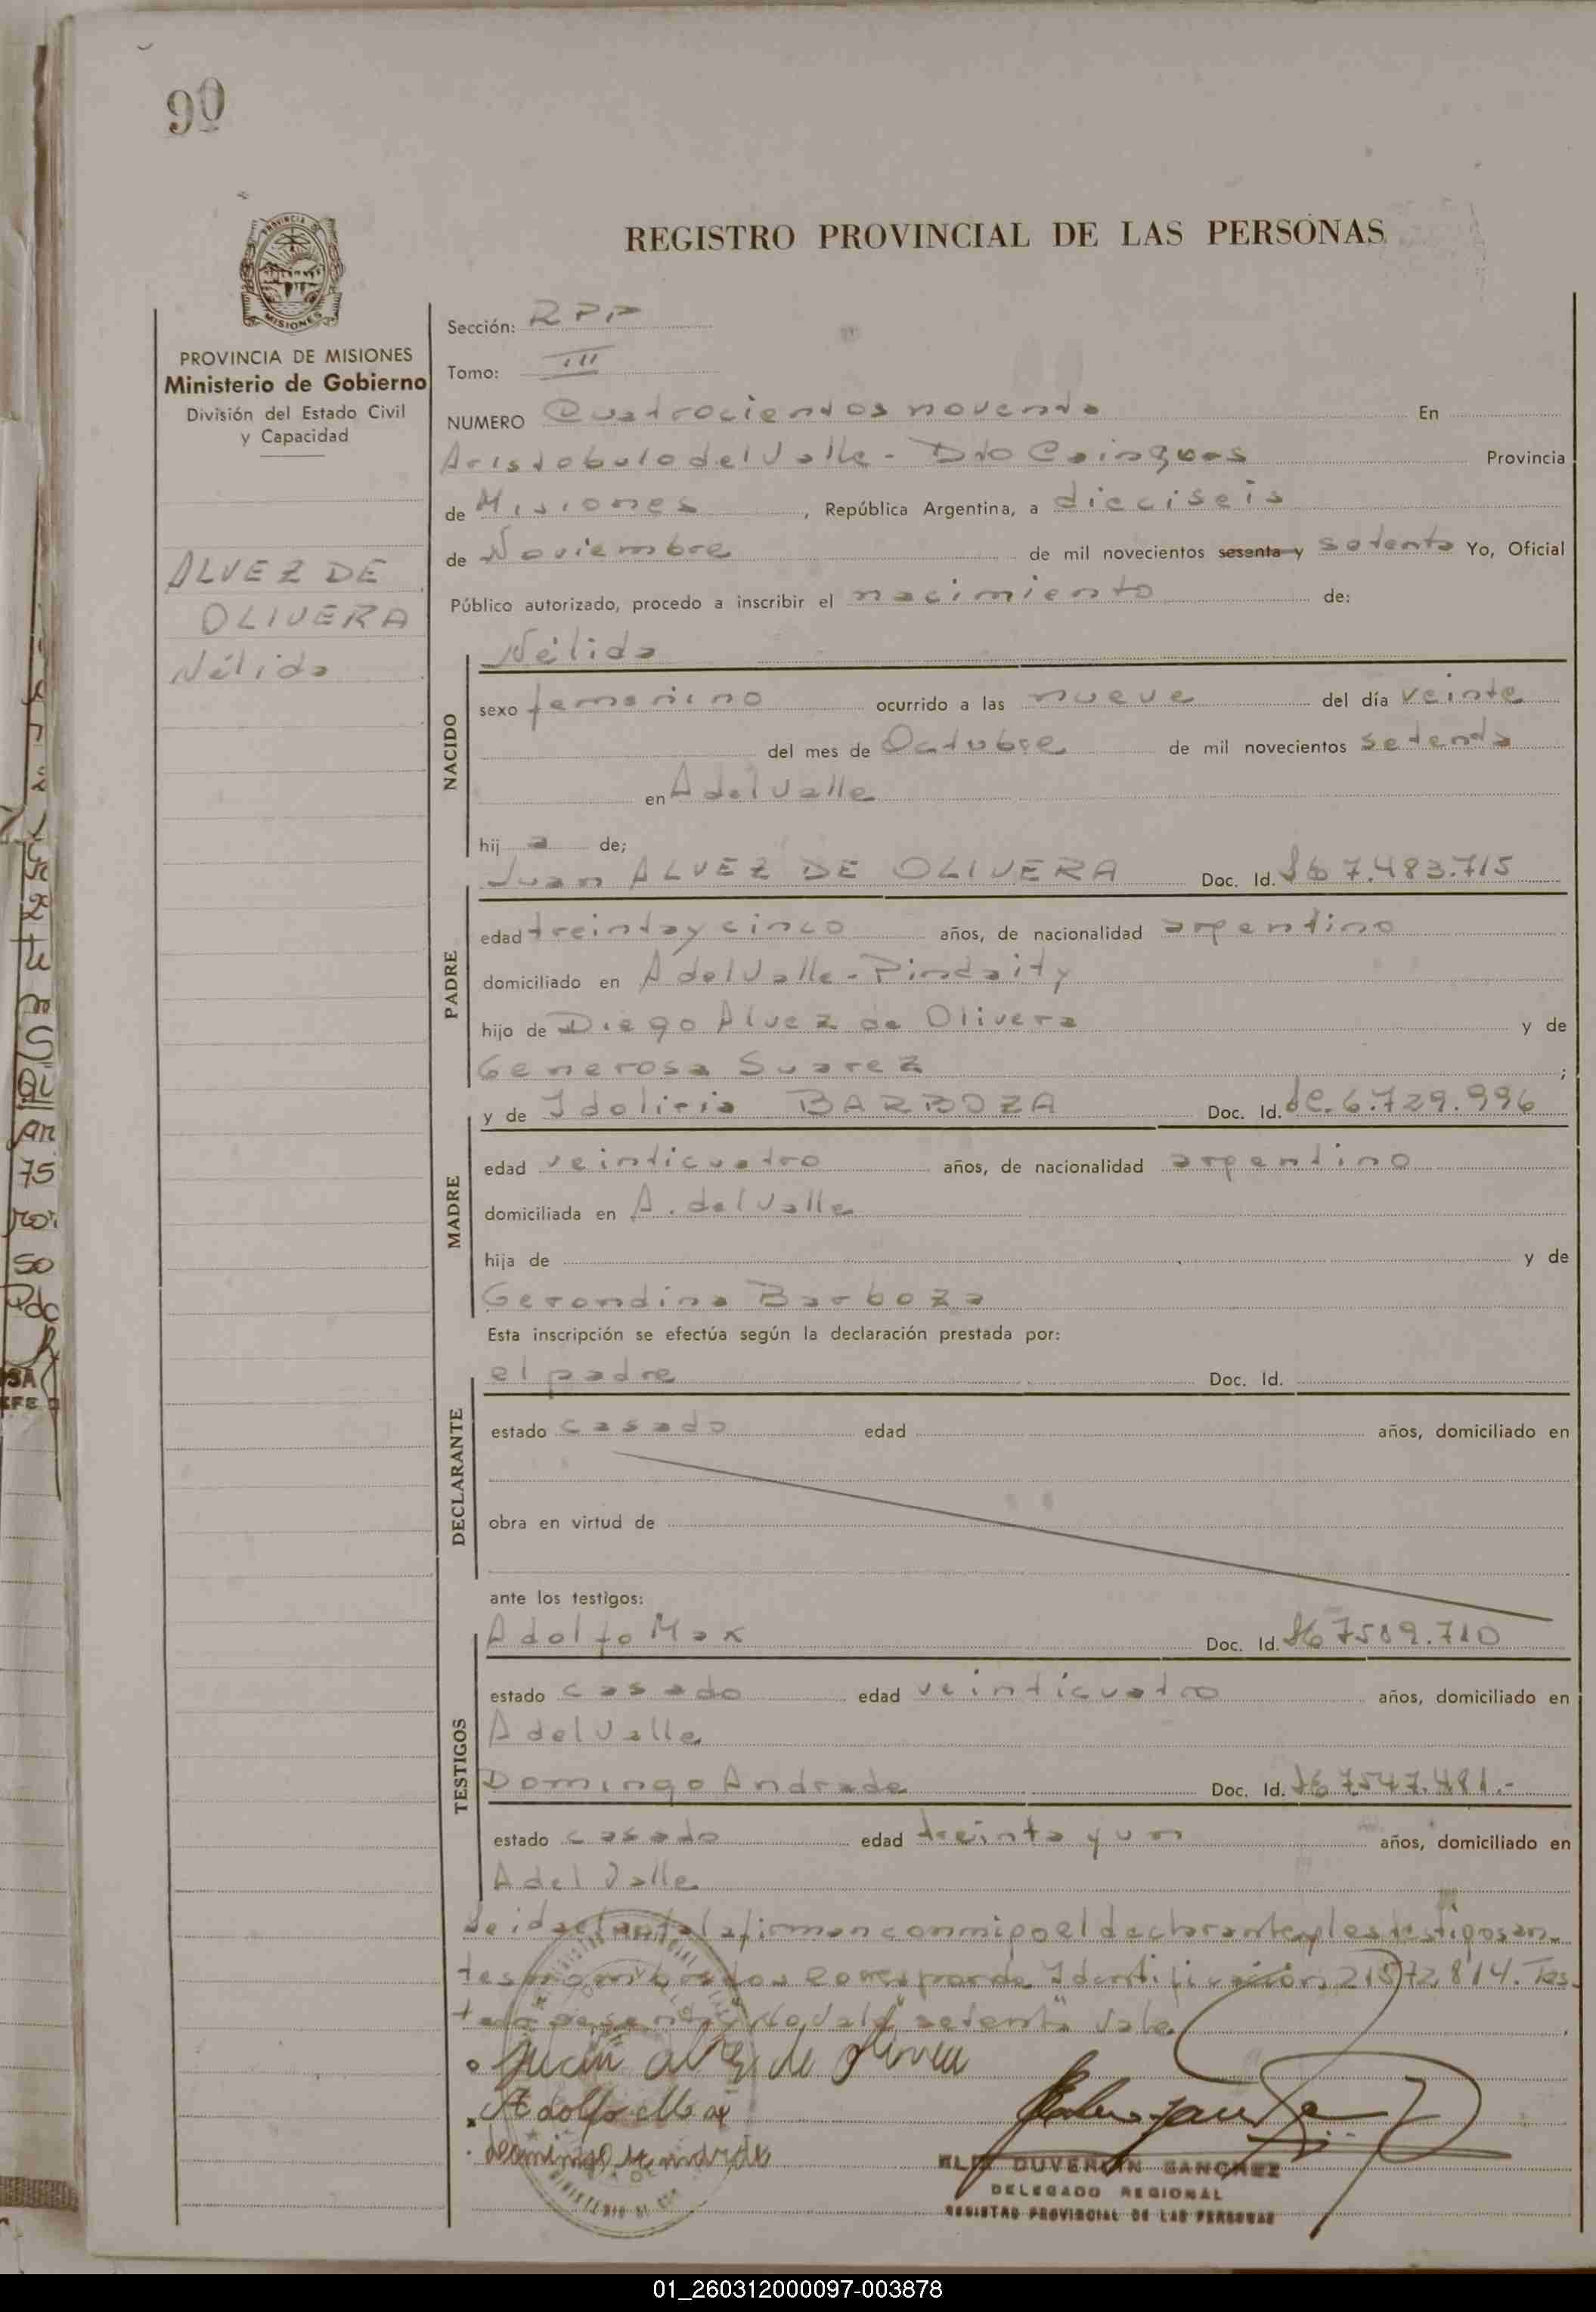 90
REGISTRO PROVINCIAL DE LAS PERSONAS
PROVINCIA
MISIONES
PROVINCIA DE MISIONES
Ministerio de Gobierno
División del Estado Civil
y Capacidad
ALVEZ DE
OLIVERA
Nélida
Sección: RPP
Tomo: III
NUMERO Quatrocientos noventa En
Aristobulo del Valle - Dto Cainguas Provincia
de Misiones, República Argentina, a dieciseis
de Noviembre de mil novecientos sesenta y setenta Yo, Oficial
Público autorizado, procedo a inscribir el nacimiento de:
NACIDO
Nélida
sexo femenino ocurrido a las nueve del día veinte
del mes de Octubre de mil novecientos setenta
en A del Valle
hij a de;
PADRE
Juan ALVEZ DE OLIVERA Doc. Id. 7.483.715
edad treinta y cinco años, de nacionalidad argentino
domiciliado en A del Valle - Pindaity
hijo de Diego Alvez de Olivera y de
Generosa Suarez ;
MADRE
y de Idoliria BARBOZA Doc. Id. 6.729.996
edad veinticuatro años, de nacionalidad argentino
domiciliada en A. del Valle
hija de y de
Gerondina Barboza
Esta inscripción se efectúa según la declaración prestada por:
DECLARANTE
el padre Doc. Id.
estado casado edad años, domiciliado en
obra en virtud de
ante los testigos:
TESTIGOS
Adolfo Max Doc. Id. 7509.710
estado casado edad veinticuatro años, domiciliado en
A del Valle
Domingo Andrade Doc. Id. 7547.481.-
estado casado edad treinta y un años, domiciliado en
A del Valle
Leida el acta la firman conmigo el declarante y los testigos an-
tes nombrados corresponde Identificación 21572814. Tes-
tado sesenta y No vale "setenta" vale
Juan alvez de olivera
Adolfo Max
domingo andrade
DUVERLIN SANCHEZ
DELEGADO REGIONAL
REGISTRO PROVINCIAL DE LAS PERSONAS
01_260312000097-003878